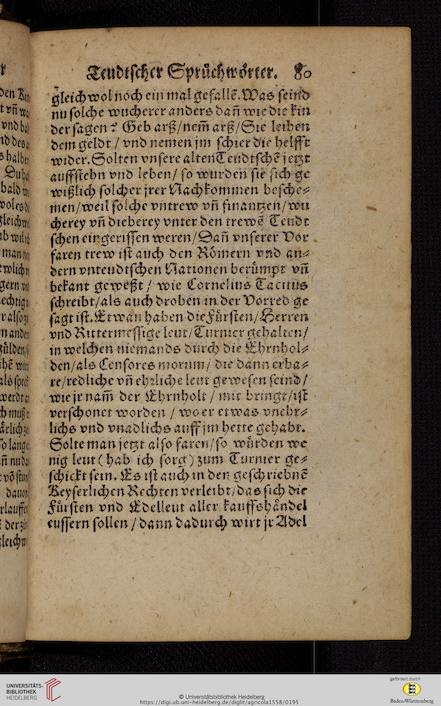 Teudtscher Sprüchwörter. 80
gleich wol noch ein mal gefallē. Was seind
nu solche wucherer anders dañ wie die kin
der sagen? Geb arß/nem̄ arß/Sie leihen
dem geldt/vnd nemen jm schier die helfft
wider. Solten vnsere alten Teudtschē jetzt
auffstehn vnd leben/so wurden sie sich ge
wißlich solcher jrer Nachkommen besche-
men/weil solche vntrew vñ finantzen/wu
cherey vñ dieberey vnter den trewē Teudt
schen eingerissen weren/Dañ vnserer Vor
faren trew ist auch den Römern vnd an-
dern vnteudtschen Nationen berümpt vñ
bekant geweßt/wie Cornelius Tacitus
schreibt/als auch droben in der Vorred ge
sagt ist. Etwan haben die Fürsten/Herren
vnd Rittermessige leut/Turnier gehalten/
in welchen niemands durch die Ehrnhol-
den/als Censores morum/die dann erba-
re/redliche vñ ehrliche leut gewesen seind/
wie jr nam̄ der Ehrnholt/mit bringt/ist
verschonet worden/wo er etwas vnehr-
lichs vnd vnadlichs auff jm hette gehabt.
Solte man jetzt also faren/so würden we
nig leut (hab ich sorg) zum Turnier ge-
schickt sein. Es ist auch in den geschriebnē
Keyserlichen Rechten verleibt/das sich die
Fürsten vnd Edelleut aller kauffshändel
eussern sollen/dann dadurch wirt jr Adel
UNIVERSITÄTS-
BIBLIOTHEK
HEIDELBERG
© Universitätsbibliothek Heidelberg
https://digi.ub.uni-heidelberg.de/diglit/agricola1558/0195
gefördert durch
Baden-Württemberg